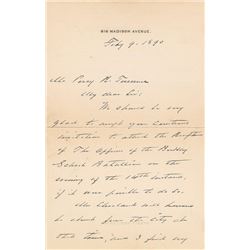 816 MADISON AVENUE.
Feby 9. 1890
Mr Percy R.
My dear Sir:
We should be very
glad to accept your courteous
invitation to attend the Reception
of The Officers of the Berkeley
School Battalion on the
evening of the 14th instant,
if it was possible to do so.
Mrs Cleveland will however
be absent from the City at
that time, and I find my